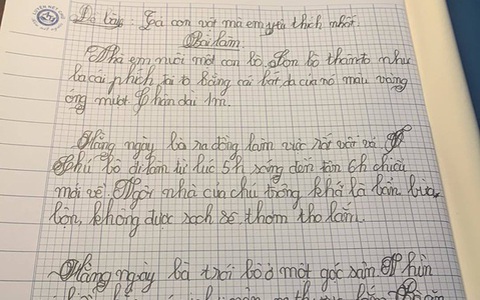 Đề bài: Tả con vật mà em yêu thích nhất.
Bài làm.
Nhà em nuôi một con bò. Con bò thân to như
là cái phích, tai to bằng cái bát, da của nó màu vàng
óng mượt. Chân dài 1m.
Hằng ngày bà ra đồng làm việc rất vất vả.
Chú bò đi làm từ lúc 5h sáng đến tận 6h chiều
mới về. Ngôi nhà của chú trông khá là bẩn bừa
bộn, không được sạch sẽ thơm tho lắm.
Hằng ngày bà trói bò ở một góc sân.